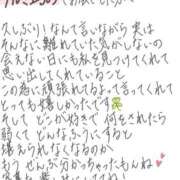 久しぶり!なんて言いながら実は
そんなに離れていた気がしないの
会えない日にも私を見つけてくれて
思い出してくれていること
この君に頑張れるよって言ってくれて
とっても嬉しかったです
そして どこが好きで 何をされたら
弱くて どんなふうにすると
堪えられなくなるのか
もう ぜんぶ分かっちゃったもんね